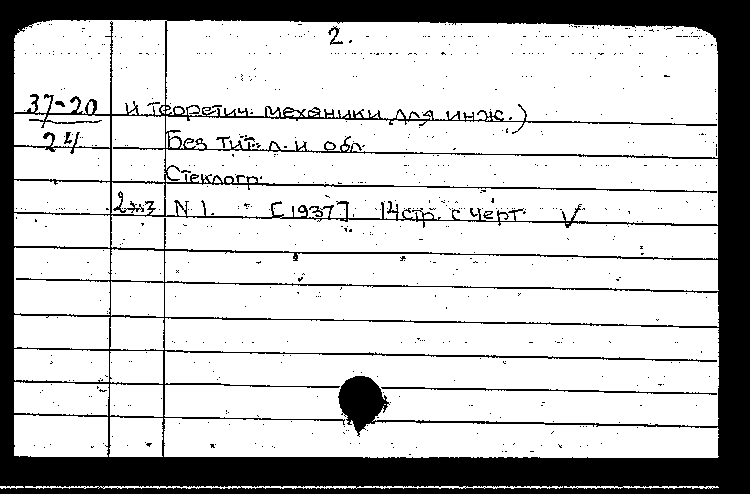 2.
37-20 и теоретич. механики для инж.)
24 Без тит. л. и обл.
Стеклогр.
2 экз N 1. - [1937]. 14 стр. с черт. V